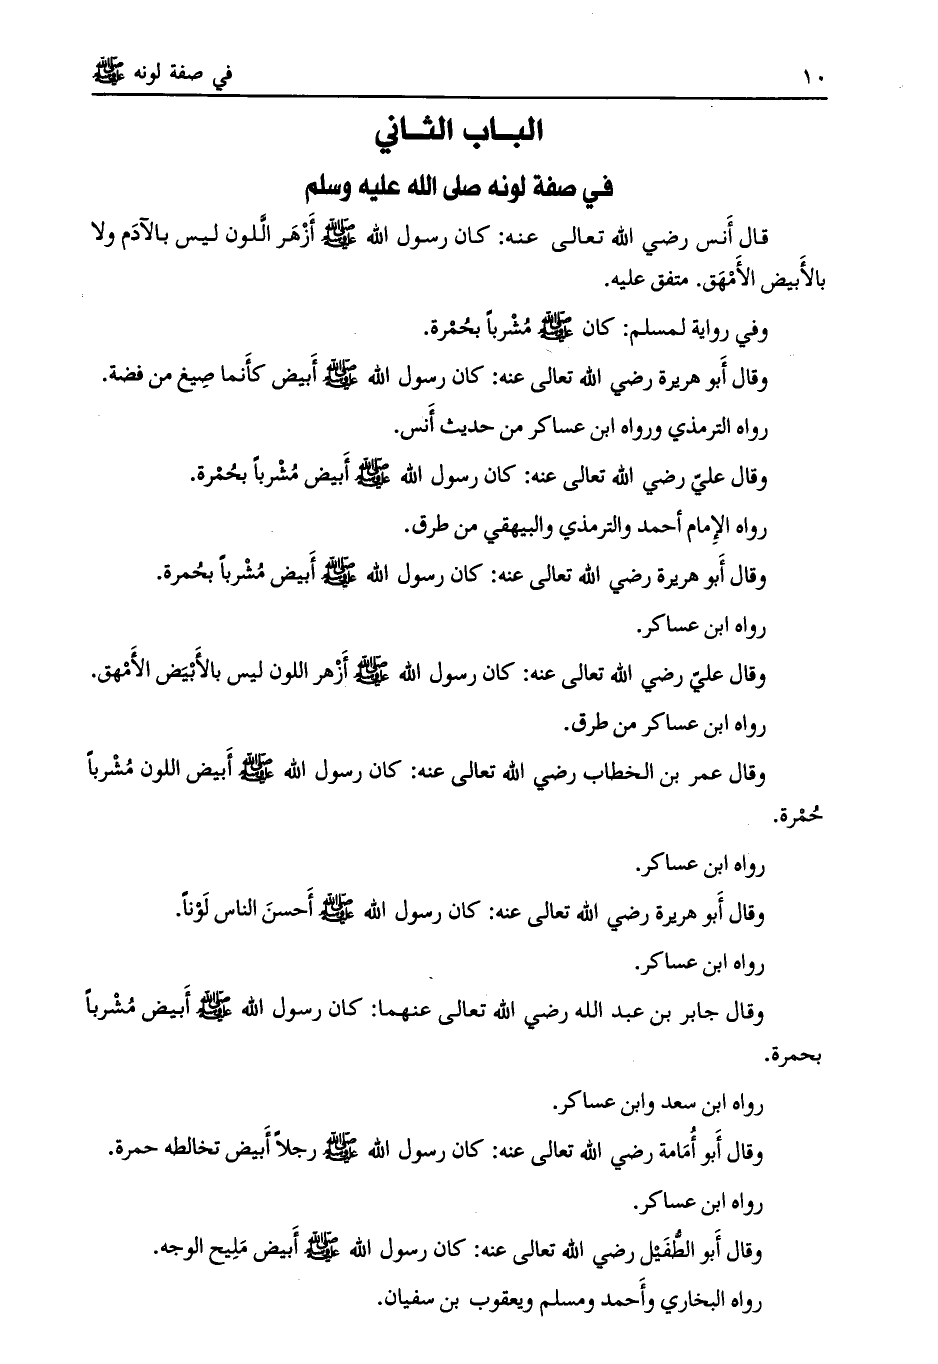 ١٠ في صفة لونه ﷺ
البـاب الثـاني
في صفة لونه صلى الله عليه وسلم
قال أَنس رضي الله تعالى عنه: كان رسول الله ﷺ أَزْهَر الَّلون ليس بالآدَم ولا
بالأَبيض الأَمْهَق. متفق عليه.
وفي رواية لمسلم: كان ﷺ مُشْرباً بحُمْرة.
وقال أَبو هريرة رضي الله تعالى عنه: كان رسول الله ﷺ أَبيض كأَنما صِيغ من فضة.
رواه الترمذي ورواه ابن عساكر من حديث أَنس.
وقال عليّ رضي الله تعالى عنه: كان رسول الله ﷺ أَبيض مُشْرباً بحُمْرة.
رواه الإِمام أحمد والترمذي والبيهقي من طرق.
وقال أَبو هريرة رضي الله تعالى عنه: كان رسول الله ﷺ أَبيض مُشْرباً بحُمرة.
رواه ابن عساكر.
وقال عليّ رضي الله تعالى عنه: كان رسول الله ﷺ أَزْهر اللون ليس بالأَبْيَض الأَمْهق.
رواه ابن عساكر من طرق.
وقال عمر بن الخطاب رضي الله تعالى عنه: كان رسول الله ﷺ أَبيض اللون مُشْرباً
حُمْرة.
رواه ابن عساكر.
وقال أَبو هريرة رضي الله تعالى عنه: كان رسول الله ﷺ أَحسنَ الناس لَوْناً.
رواه ابن عساكر.
وقال جابر بن عبد الله رضي الله تعالى عنهما: كان رسول الله ﷺ أَبيض مُشْرباً
بحمرة.
رواه ابن سعد وابن عساكر.
وقال أَبو أُمَامة رضي الله تعالى عنه: كان رسول الله ﷺ رجلاً أَبيض تخالطه حمرة.
رواه ابن عساكر.
وقال أَبو الطُّفَيْل رضي الله تعالى عنه: كان رسول الله ﷺ أَبيض مَلِيح الوجه.
رواه البخاري وأَحمد ومسلم ويعقوب بن سفيان.